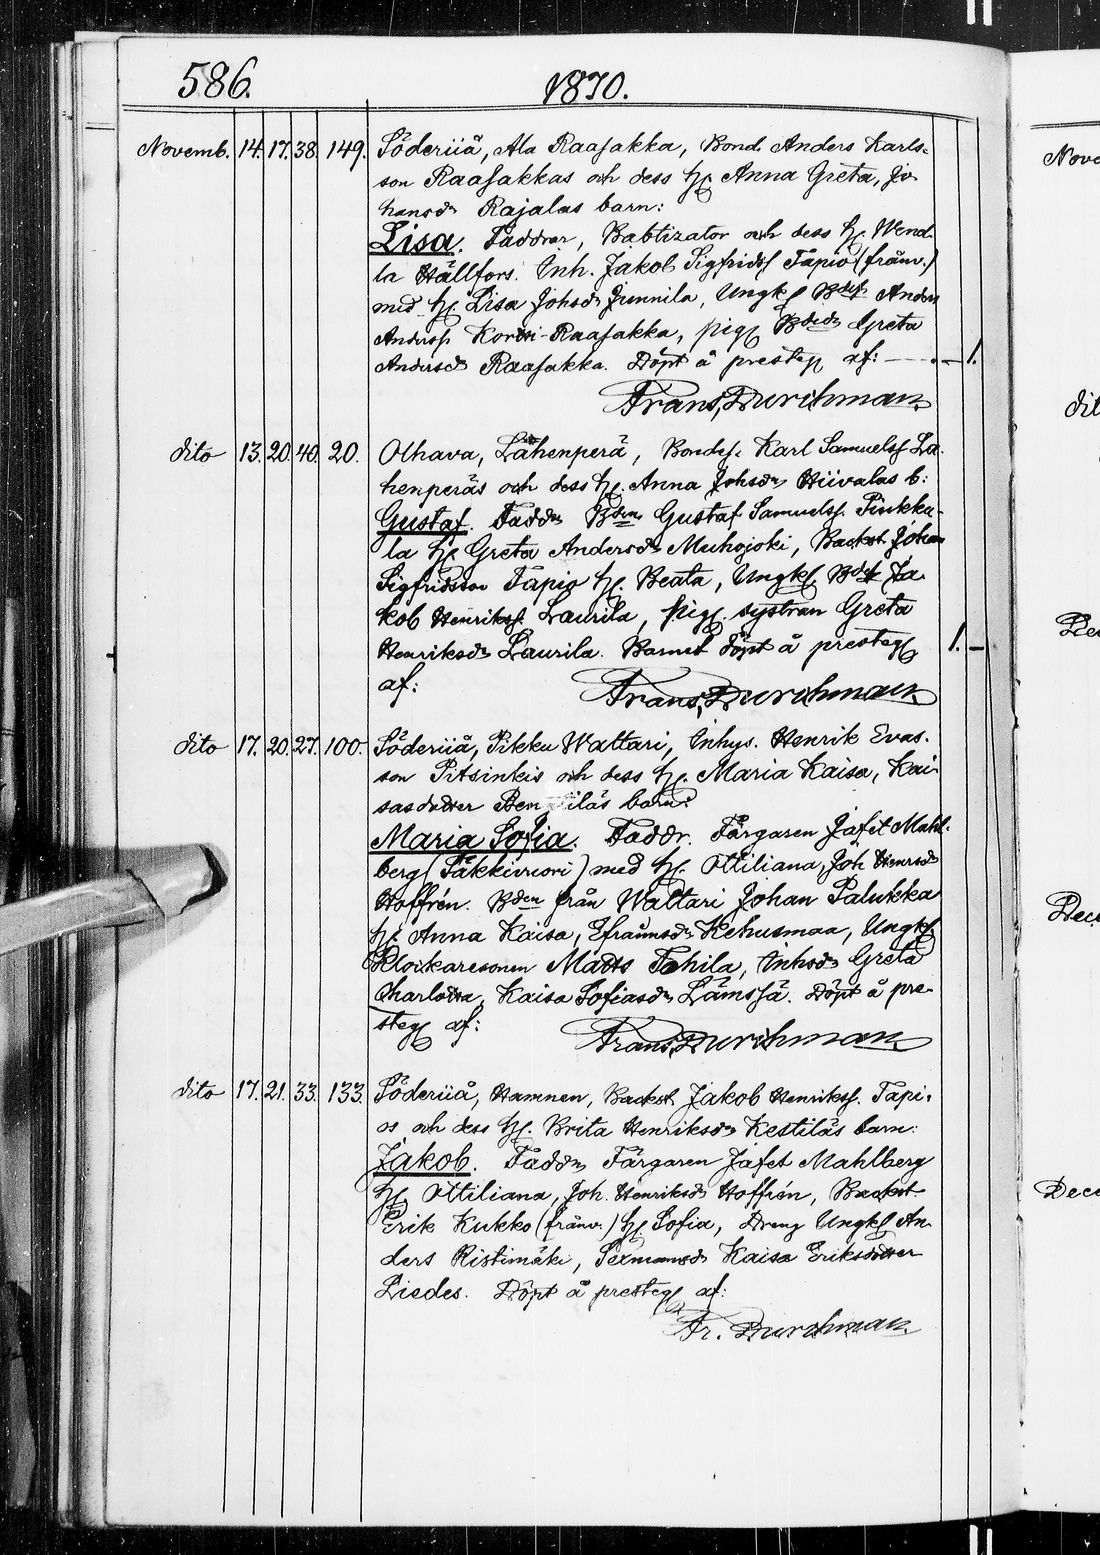 586. 1870.
Novemb. 14. 17. 38. 149. Söderijå, Ala Raasakka, Bond. Anders Karls-
son Raasakkas och dess H. Anna Greta, Jo-
hansdr Rajalas barn:
Lisa. Faddrar, Babtizator och dess H. Wend-
la Hällfors. Inh. Jakob Sigfridss Tapio (frånv.)
med H. Lisa Johsdr Junnila, Ungk Bdes Anders
Anderss Kortti-Raasakka, pig Bdeds Greta
Andersdr Raasakka. Döpt å presteg af: 1.
Frans Durchman
dito 13. 20. 40. 20. Olhava, Lähenperä, Bondes. Karl Samuelss Lä-
henperäs och dess H. Anna Johsdr Hiivalas b:
Gustaf. Faddr Bden Gustaf Samuelss. Pinkka-
la H. Greta Andersdr Muhojoki, Backst Johan
Sigfridsson Tapio H. Beata, Ungk Bdes Ja-
kob Henrikss. Laurila, pig. systran Greta
Henriksdr Laurila. Barnet döpt å presteg 1.
af: Frans Durchman
dito 17. 20. 27. 100. Söderijå, Pikku Wattari, Inhys. Henrik Evas-
son Pitsinkis och dess H. Maria Kaisa, Kai-
sasdotter barn:
Maria Sofia. Faddr. Färgaren Jafet Mahl-
berg (Täkkivuori) med H. Ottiliana, Joh Henrsdr
Hoffrén. Bden från Wattari Johan Palukka
H. Anna Kaisa, Efraimsdr Kehusmaa, Ungk
Klockaresonen Matts Tohila, Inhsdr Greta
Charlotta, Kaisa Sofiasdr Lämsjä. Döpt å pre-
steg af: Frans Durchman
dito 17. 21. 33. 133. Söderijå, Hamnen, Backst Jakob Henrikss. Tapi-
os och dess H. Brita Henriksdr Kestiläs barn:
Jakob. Faddr Färgaren Jafet Mahlberg
H. Ottiliana, Joh. Henriksdr Hoffrén, Backst
Erik Kukko (frånv.) H. Sofia, Dreng Ungk An-
ders Ristimäki, Sexmansd Kaisa Eriksdotter
Liedes. Döpt å presteg af:
Fr. Durchman